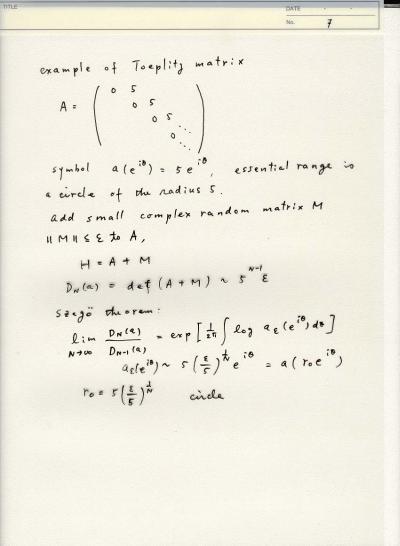 TITLE
DATE
No. 7
example of Toeplitz matrix
A = ( 0 5
0 5
0 5
0 ⋱
⋱ )
symbol a(e^{iθ}) = 5e^{iθ}, essential range is
a circle of the radius 5.
add small complex random matrix M
||M|| ≤ ε to A,
H = A + M
D_N(a) = det(A + M) ~ 5^{N-1} ε
Szegö theorem:
lim_{N→∞} D_N(a) / D_{N-1}(a) = exp[ 1/2π ∫ log a_ε(e^{iθ}) dθ ]
a_ε(e^{iθ}) ~ 5 (ε/5)^{1/N} e^{iθ} = a(r_0 e^{iθ})
r_0 = 5 (ε/5)^{1/N} circle